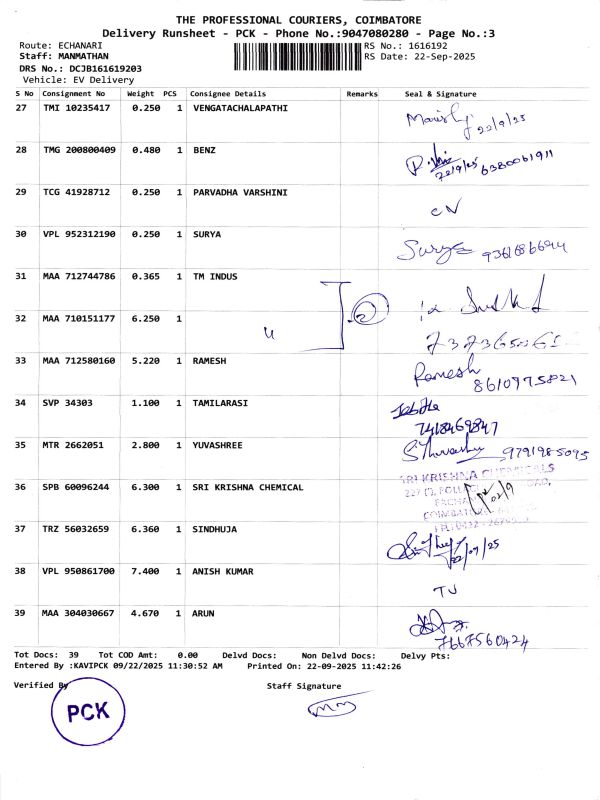 THE PROFESSIONAL COURIERS, COIMBATORE
Delivery Runsheet - PCK - Phone No.:9047080280 - Page No.:3
Route: ECHANARI RS No.: 1616192
Staff: MANMATHAN RS Date: 22-Sep-2025
DRS No.: DCJB161619203
Vehicle: EV Delivery
S No Consignment No Weight PCS Consignee Details Remarks Seal & Signature
27 TMI 10235417 0.250 1 VENGATACHALAPATHI
22/9/25
28 TMG 200800409 0.480 1 BENZ
22/9/25 6380061911
29 TCG 41928712 0.250 1 PARVADHA VARSHINI
CV
30 VPL 952312190 0.250 1 SURYA
Surya
31 MAA 712744786 0.365 1 TM INDUS
2
32 MAA 710151177 6.250 1
33 MAA 712580160 5.220 1 RAMESH
Ramesh
8610975821
34 SVP 34303 1.100 1 TAMILARASI
7418469847
35 MTR 2662051 2.800 1 YUVASHREE
9791985095
36 SPB 60096244 6.300 1 SRI KRISHNA CHEMICAL
SRI KRISHNA CHEMICALS
37 TRZ 56032659 6.360 1 SINDHUJA
22/09/25
38 VPL 950861700 7.400 1 ANISH KUMAR
TJ
39 MAA 304030667 4.670 1 ARUN
7667560424
Tot Docs: 39 Tot COD Amt: 0.00 Delvd Docs: Non Delvd Docs: Delvy Pts:
Entered By :KAVIPCK 09/22/2025 11:30:52 AM Printed On: 22-09-2025 11:42:26
Verified By Staff Signature
PCK